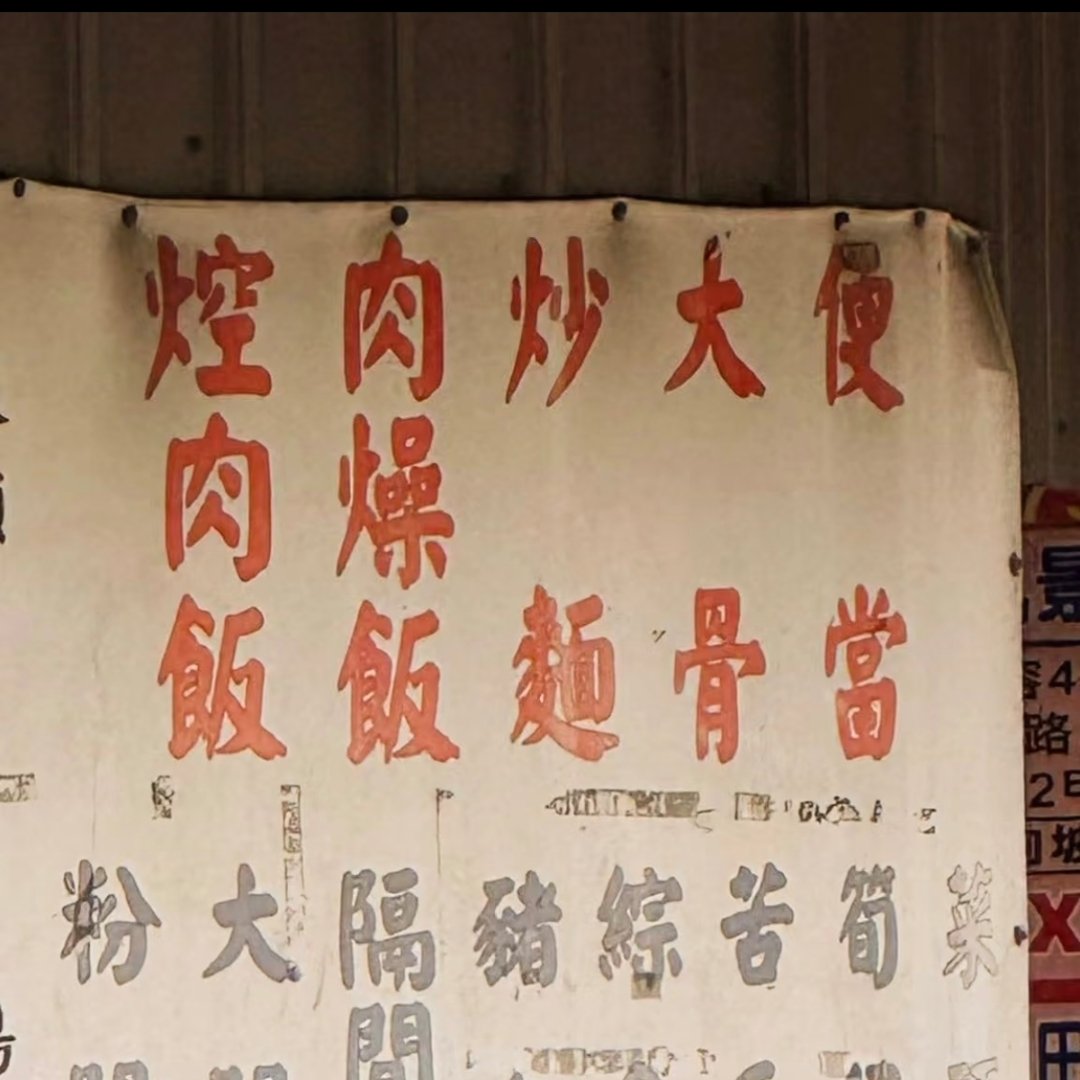 便當
大骨
炒麵
肉燥飯
焢肉飯
菜
筍
苦
綜
豬
隔間
大
粉